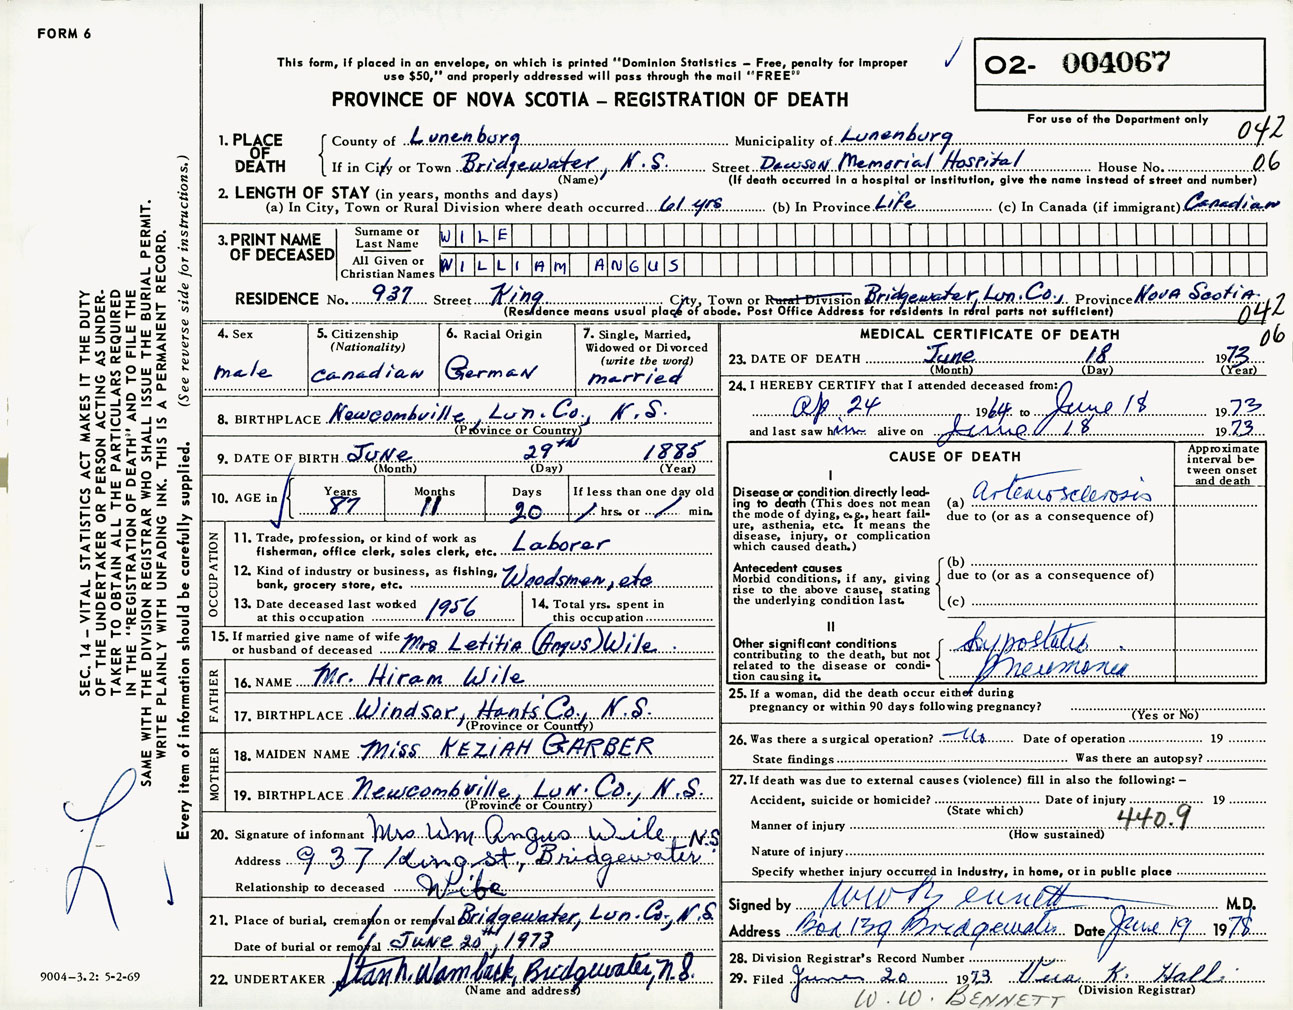 FORM 6
This form, if placed in an envelope, on which is printed "Dominion Statistics – Free, penalty for improper
use $50," and properly addressed will pass through the mail "FREE"
PROVINCE OF NOVA SCOTIA – REGISTRATION OF DEATH
02- 004067
For use of the Department only
042
06
1. PLACE OF DEATH
County of Lunenburg Municipality of Lunenburg
If in City or Town Bridgewater, N.S. Street Dawson Memorial Hospital House No.
(Name) (If death occurred in a hospital or institution, give the name instead of street and number)
2. LENGTH OF STAY (in years, months and days)
(a) In City, Town or Rural Division where death occurred 61 yrs (b) In Province Life (c) In Canada (if immigrant) Canadian
3. PRINT NAME OF DECEASED
Surname or Last Name WILE
All Given or Christian Names WILLIAM ANGUS
RESIDENCE No. 937 Street King City, Town or Rural Division Bridgewater, Lun. Co., Province Nova Scotia
(Residence means usual place of abode. Post Office Address for residents in rural parts not sufficient)
042
06
4. Sex
male
5. Citizenship
(Nationality)
Canadian
6. Racial Origin
German
7. Single, Married,
Widowed or Divorced
(write the word)
married
8. BIRTHPLACE Newcombville, Lun. Co., N.S.
(Province or Country)
9. DATE OF BIRTH June 29th 1885
(Month) (Day) (Year)
10. AGE in
Years Months Days If less than one day old
87 11 20 hrs. or min.
OCCUPATION
11. Trade, profession, or kind of work as
fisherman, office clerk, sales clerk, etc. Laborer
12. Kind of industry or business, as fishing,
bank, grocery store, etc. Woodsmen, etc
13. Date deceased last worked
at this occupation 1956
14. Total yrs. spent in
this occupation
15. If married give name of wife
or husband of deceased Mrs Letitia (Angus) Wile
FATHER
16. NAME Mr. Hiram Wile
17. BIRTHPLACE Windsor, Hants Co., N.S.
(Province or Country)
MOTHER
18. MAIDEN NAME Miss KEZIAH GARBER
19. BIRTHPLACE Newcombville, Lun. Co., N.S.
(Province or Country)
20. Signature of informant Mrs Wm Angus Wile
Address 937 King St, Bridgewater N.S
Relationship to deceased Wife
21. Place of burial, cremation or removal Bridgewater, Lun. Co., N.S
Date of burial or removal June 20th, 1973
22. UNDERTAKER Stan N. Wamback, Bridgewater, N.S.
(Name and address)
MEDICAL CERTIFICATE OF DEATH
23. DATE OF DEATH June 18 1973
(Month) (Day) (Year)
24. I HEREBY CERTIFY that I attended deceased from:
Ap 24 1964 to June 18 1973
and last saw him alive on June 18 1973
CAUSE OF DEATH
Approximate
interval be-
tween onset
and death
I
Disease or condition directly lead-
ing to death (This does not mean
the mode of dying, e.g., heart fail-
ure, asthenia, etc. It means the
disease, injury, or complication
which caused death.)
(a) Arteriosclerosis
due to (or as a consequence of)
Antecedent causes
Morbid conditions, if any, giving
rise to the above cause, stating
the underlying condition last.
(b)
due to (or as a consequence of)
(c)
II
Other significant conditions
contributing to the death, but not
related to the disease or condi-
tion causing it.
Hypostatic
Pneumonia
25. If a woman, did the death occur either during
pregnancy or within 90 days following pregnancy?
(Yes or No)
26. Was there a surgical operation? No Date of operation 19
State findings Was there an autopsy?
27. If death was due to external causes (violence) fill in also the following: –
Accident, suicide or homicide? Date of injury 19
(State which)
Manner of injury 440.9
(How sustained)
Nature of injury
Specify whether injury occurred in industry, in home, or in public place
Signed by WW Bennett M.D.
Address Box 139 Bridgewater Date June 19 1973
28. Division Registrar's Record Number
29. Filed June 20 1973 Vera K. Hall
(Division Registrar)
W. W. BENNETT
SEC. 14 – VITAL STATISTICS ACT MAKES IT THE DUTY
OF THE UNDERTAKER OR PERSON ACTING AS UNDER-
TAKER TO OBTAIN ALL THE PARTICULARS REQUIRED
IN THE "REGISTRATION OF DEATH" AND TO FILE THE
SAME WITH THE DIVISION REGISTRAR WHO SHALL ISSUE THE BURIAL PERMIT.
WRITE PLAINLY WITH UNFADING INK. THIS IS A PERMANENT RECORD.
Every item of information should be carefully supplied. (See reverse side for instructions.)
9004–3.2: 5-2-69